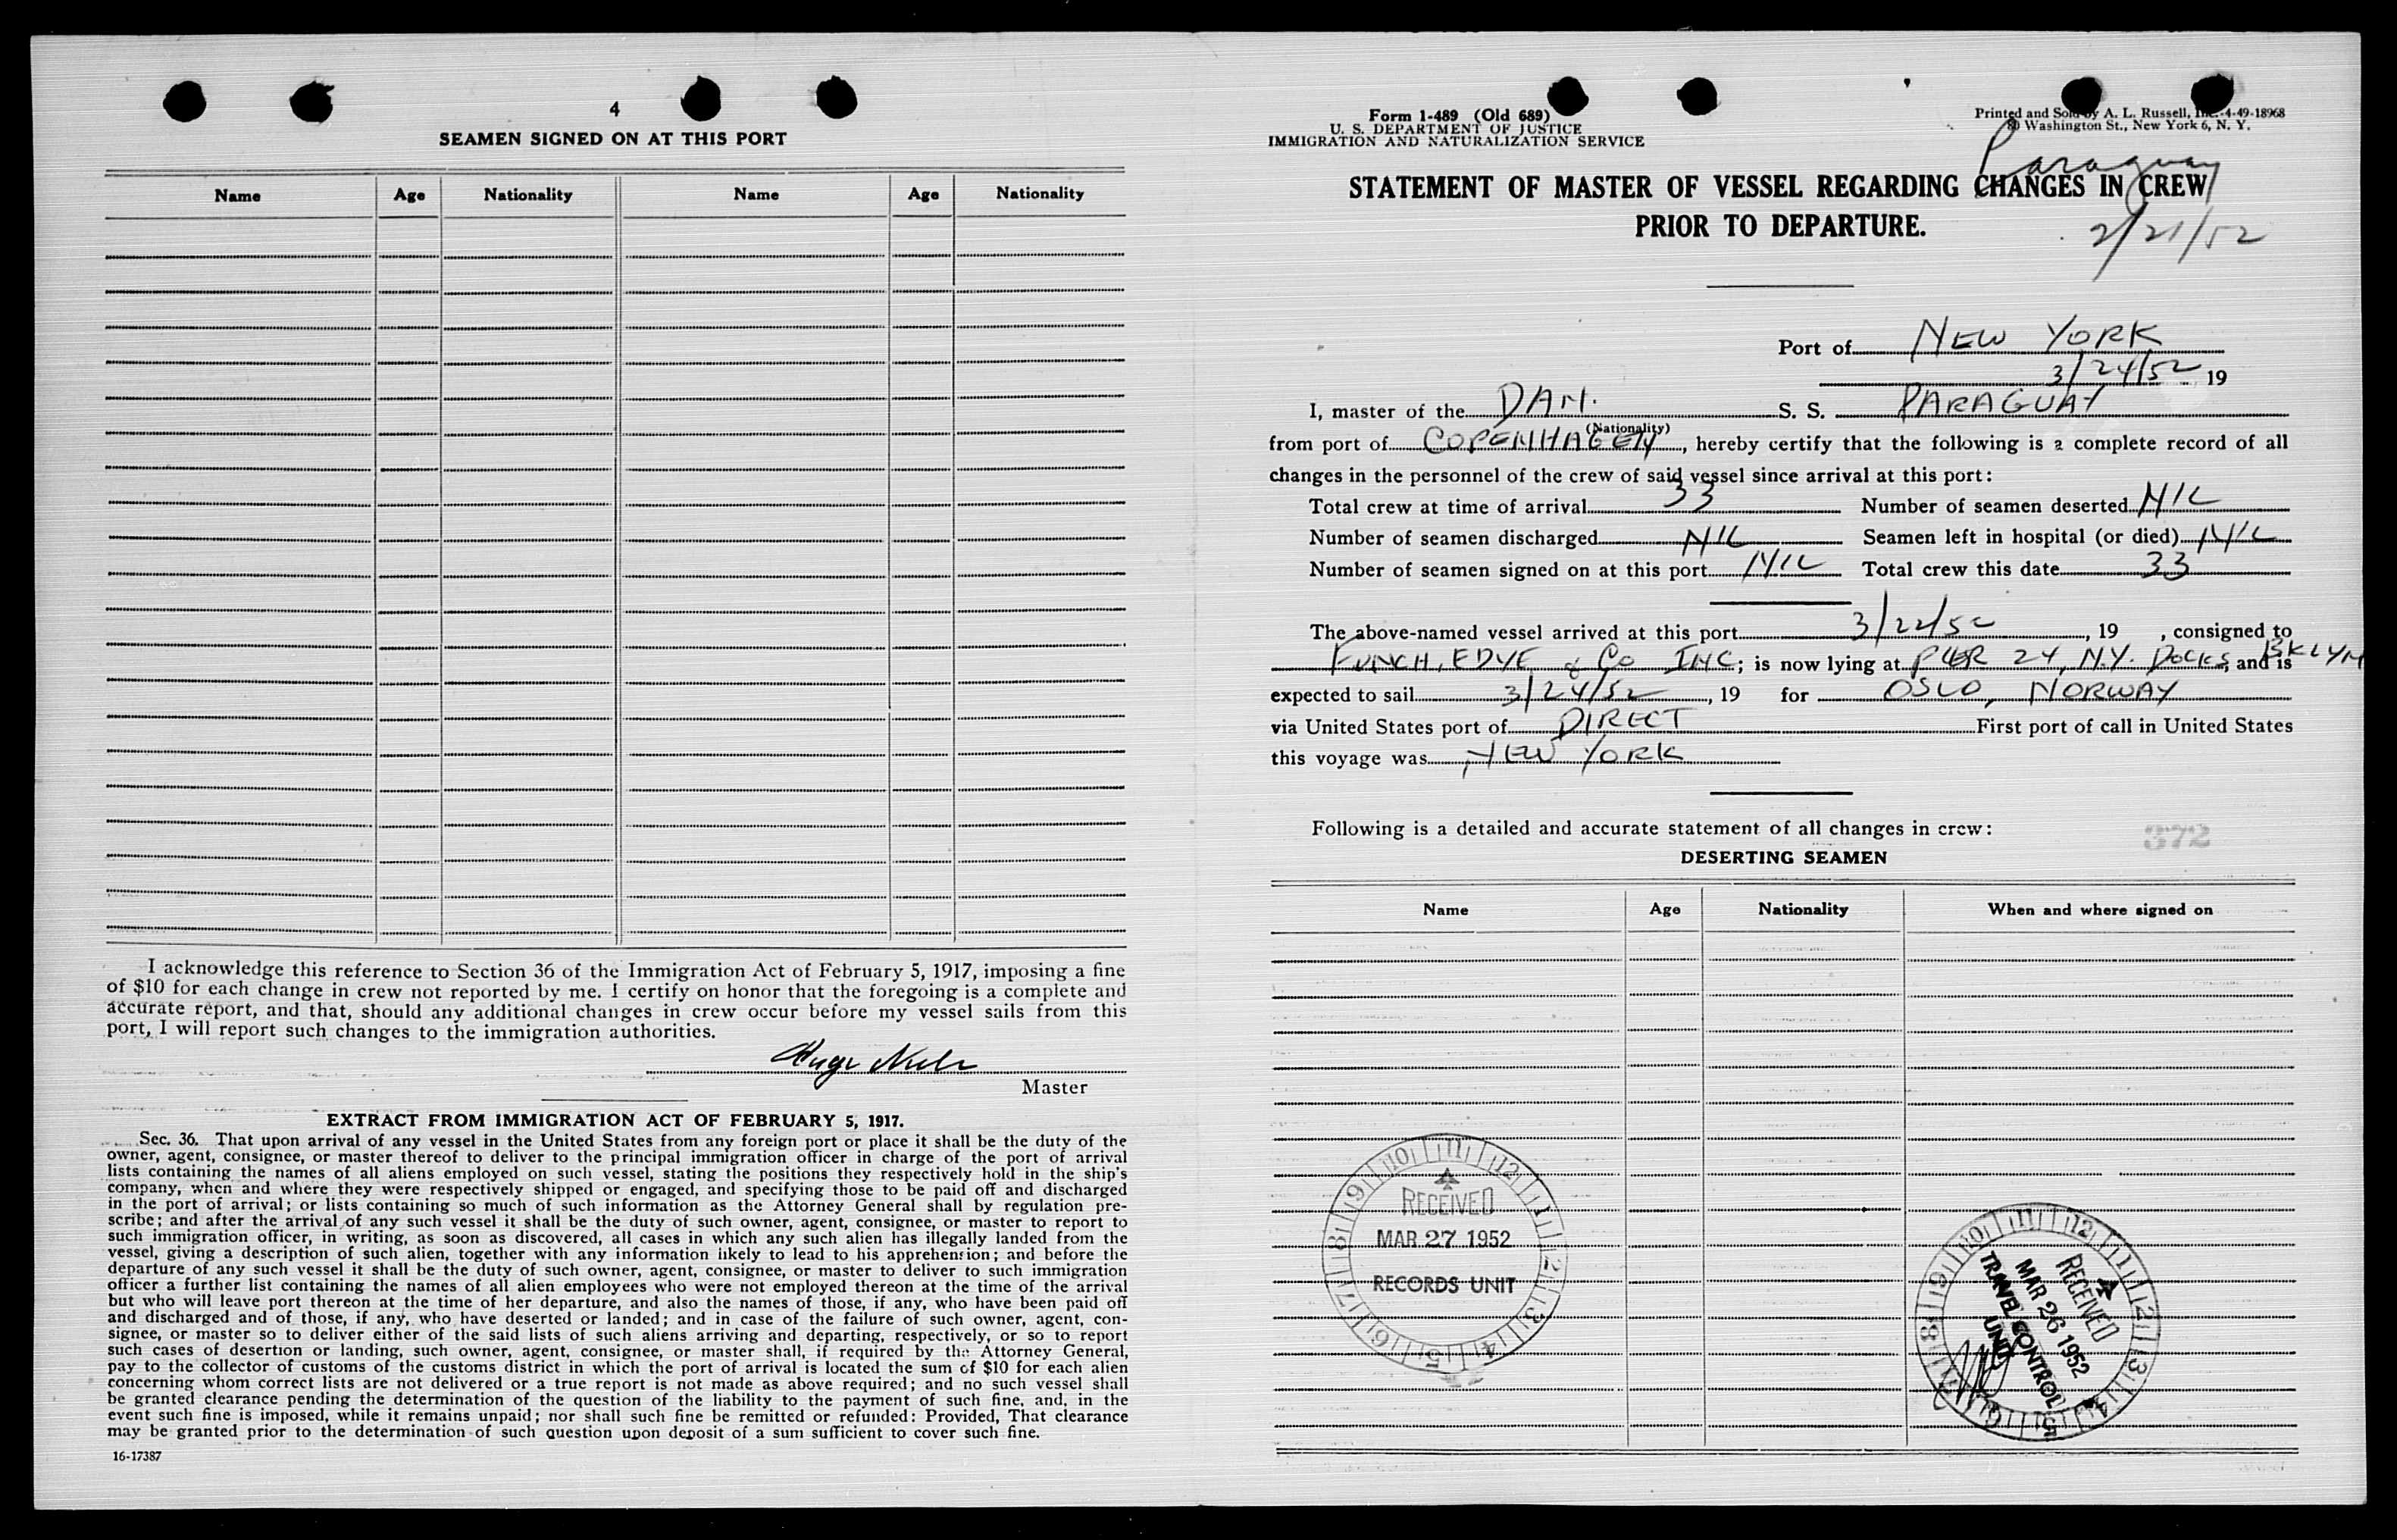 4
SEAMEN SIGNED ON AT THIS PORT
Name Age Nationality Name Age Nationality
I acknowledge this reference to Section 36 of the Immigration Act of February 5, 1917, imposing a fine
of $10 for each change in crew not reported by me. I certify on honor that the foregoing is a complete and
accurate report, and that, should any additional changes in crew occur before my vessel sails from this
port, I will report such changes to the immigration authorities.
Master
EXTRACT FROM IMMIGRATION ACT OF FEBRUARY 5, 1917.
Sec. 36. That upon arrival of any vessel in the United States from any foreign port or place it shall be the duty of the
owner, agent, consignee, or master thereof to deliver to the principal immigration officer in charge of the port of arrival
lists containing the names of all aliens employed on such vessel, stating the positions they respectively hold in the ship's
company, when and where they were respectively shipped or engaged, and specifying those to be paid off and discharged
in the port of arrival; or lists containing so much of such information as the Attorney General shall by regulation pre-
scribe; and after the arrival of any such vessel it shall be the duty of such owner, agent, consignee, or master to report to
such immigration officer, in writing, as soon as discovered, all cases in which any such alien has illegally landed from the
vessel, giving a description of such alien, together with any information likely to lead to his apprehension; and before the
departure of any such vessel it shall be the duty of such owner, agent, consignee, or master to deliver to such immigration
officer a further list containing the names of all alien employees who were not employed thereon at the time of the arrival
but who will leave port thereon at the time of her departure, and also the names of those, if any, who have been paid off
and discharged and of those, if any, who have deserted or landed; and in case of the failure of such owner, agent, con-
signee, or master so to deliver either of the said lists of such aliens arriving and departing, respectively, or so to report
such cases of desertion or landing, such owner, agent, consignee, or master shall, if required by the Attorney General,
pay to the collector of customs of the customs district in which the port of arrival is located the sum of $10 for each alien
concerning whom correct lists are not delivered or a true report is not made as above required; and no such vessel shall
be granted clearance pending the determination of the question of the liability to the payment of such fine, and, in the
event such fine is imposed, while it remains unpaid; nor shall such fine be remitted or refunded: Provided, That clearance
may be granted prior to the determination of such question upon deposit of a sum sufficient to cover such fine.
16-17387
Form 1-489 (Old 689)
U. S. DEPARTMENT OF JUSTICE
IMMIGRATION AND NATURALIZATION SERVICE
Printed and Sold by A. L. Russell, Inc. 4-49-18968
80 Washington St., New York 6, N. Y.
Paraguay
STATEMENT OF MASTER OF VESSEL REGARDING CHANGES IN CREW
PRIOR TO DEPARTURE.
2/21/52
Port of NEW YORK
3/24/52 19
I, master of the DAN. S. S. PARAGUAY
(Nationality)
from port of COPENHAGEN, hereby certify that the following is a complete record of all
changes in the personnel of the crew of said vessel since arrival at this port:
Total crew at time of arrival 33 Number of seamen deserted NIL
Number of seamen discharged NIL Seamen left in hospital (or died) NIL
Number of seamen signed on at this port NIL Total crew this date 33
The above-named vessel arrived at this port 3/22/52, 19 , consigned to
FUNCH, EDYE & Co INC; is now lying at PIER 24, N.Y. DOCKS, BKLYN and is
expected to sail 3/24/52, 19 for OSLO, NORWAY
via United States port of DIRECT First port of call in United States
this voyage was NEW YORK
Following is a detailed and accurate statement of all changes in crew:
372
DESERTING SEAMEN
Name Age Nationality When and where signed on
10 11 12 1 2 3 4 5 6 7 8 9
RECEIVED
MAR 27 1952
RECORDS UNIT
10 11 12 1 2 3 4 5 6 7 8 9
RECEIVED
MAR 26 1952
TRAVEL CONTROL
UNIT